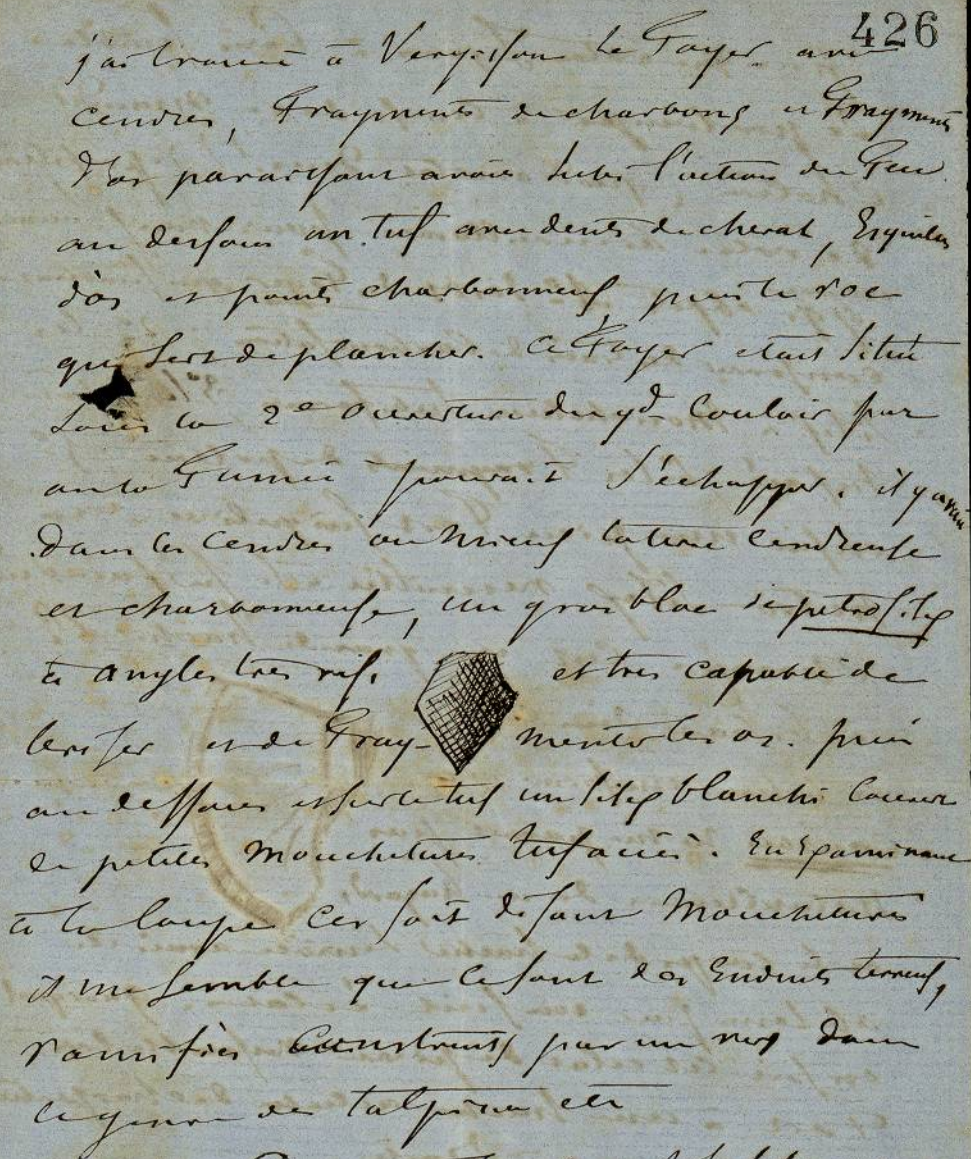 426
j'ai trouvé à Vergisson le Foyer avec
cendres, Fragments de charbons et Fragments
d'os paraissant avoir subi l'action du Feu.
au dessous un tuf avec dents de cheval, Esquilles
d'os et points charbonneux, puis le roc
qui sert de plancher. Ce Foyer était situé
sous la 2e ouverture du gd couloir par
où la Fumée pouvait s'échapper. il y avait
dans les cendres ou mieux la terre cendreuse
et charbonneuse, un gros bloc de petrosilex
à angles très vifs, et très capable de
briser et de Frag- menter les os. puis
au dessous et sur le tuf un silex blanchi couvert
de petites Mouchetures tufacées. En Examinant
à la loupe ces soit disant Mouchetures
il me semble que ce sont des Enduits terreux,
ramifiés construits par un ver dans
le genre des